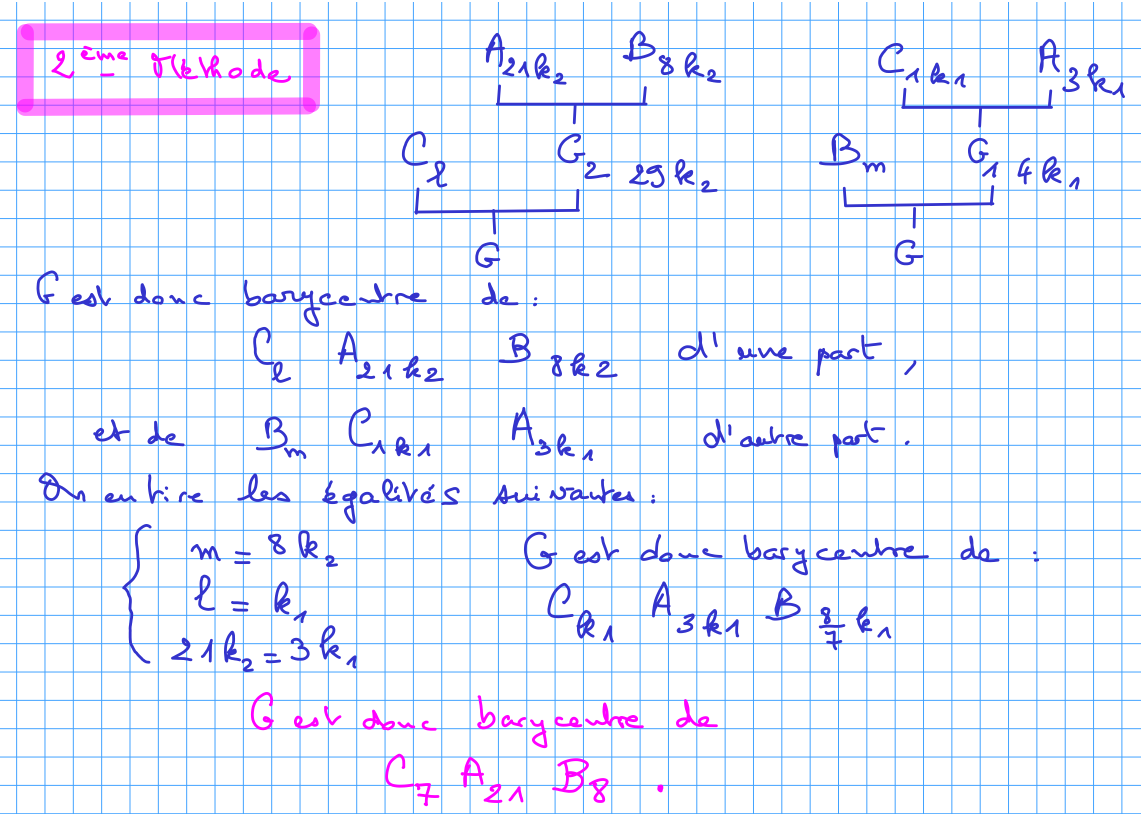 2ème Méthode
A 21k₂ B 8k₂ C 1k₁ A 3k₁
C ℓ G₂ 29k₂ B m G₁ 4k₁
G G
G est donc barycentre de :
C ℓ A 21k₂ B 8k2 d'une part ,
et de B m C 1k1 A 3k₁ d'autre part .
On en tire les égalités suivantes :
m = 8k₂ G est donc barycentre de :
ℓ = k₁ C k1 A 3k1 B 8/7 k₁
21k₂ = 3k₁
G est donc barycentre de
C₇ A₂₁ B₈ .